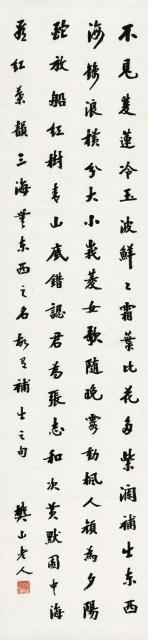 不見菱蓮冷玉波鮮〻霜葉比花多紫瀾補出東西
海錦浪橫分大小莪菱女歌隨晚霧動楓人顏為夕陽
酡放船紅樹青山底錯認君為張志和次黃默園中海
看紅葉韻三海無東西之名故有補出之句
樊山老人